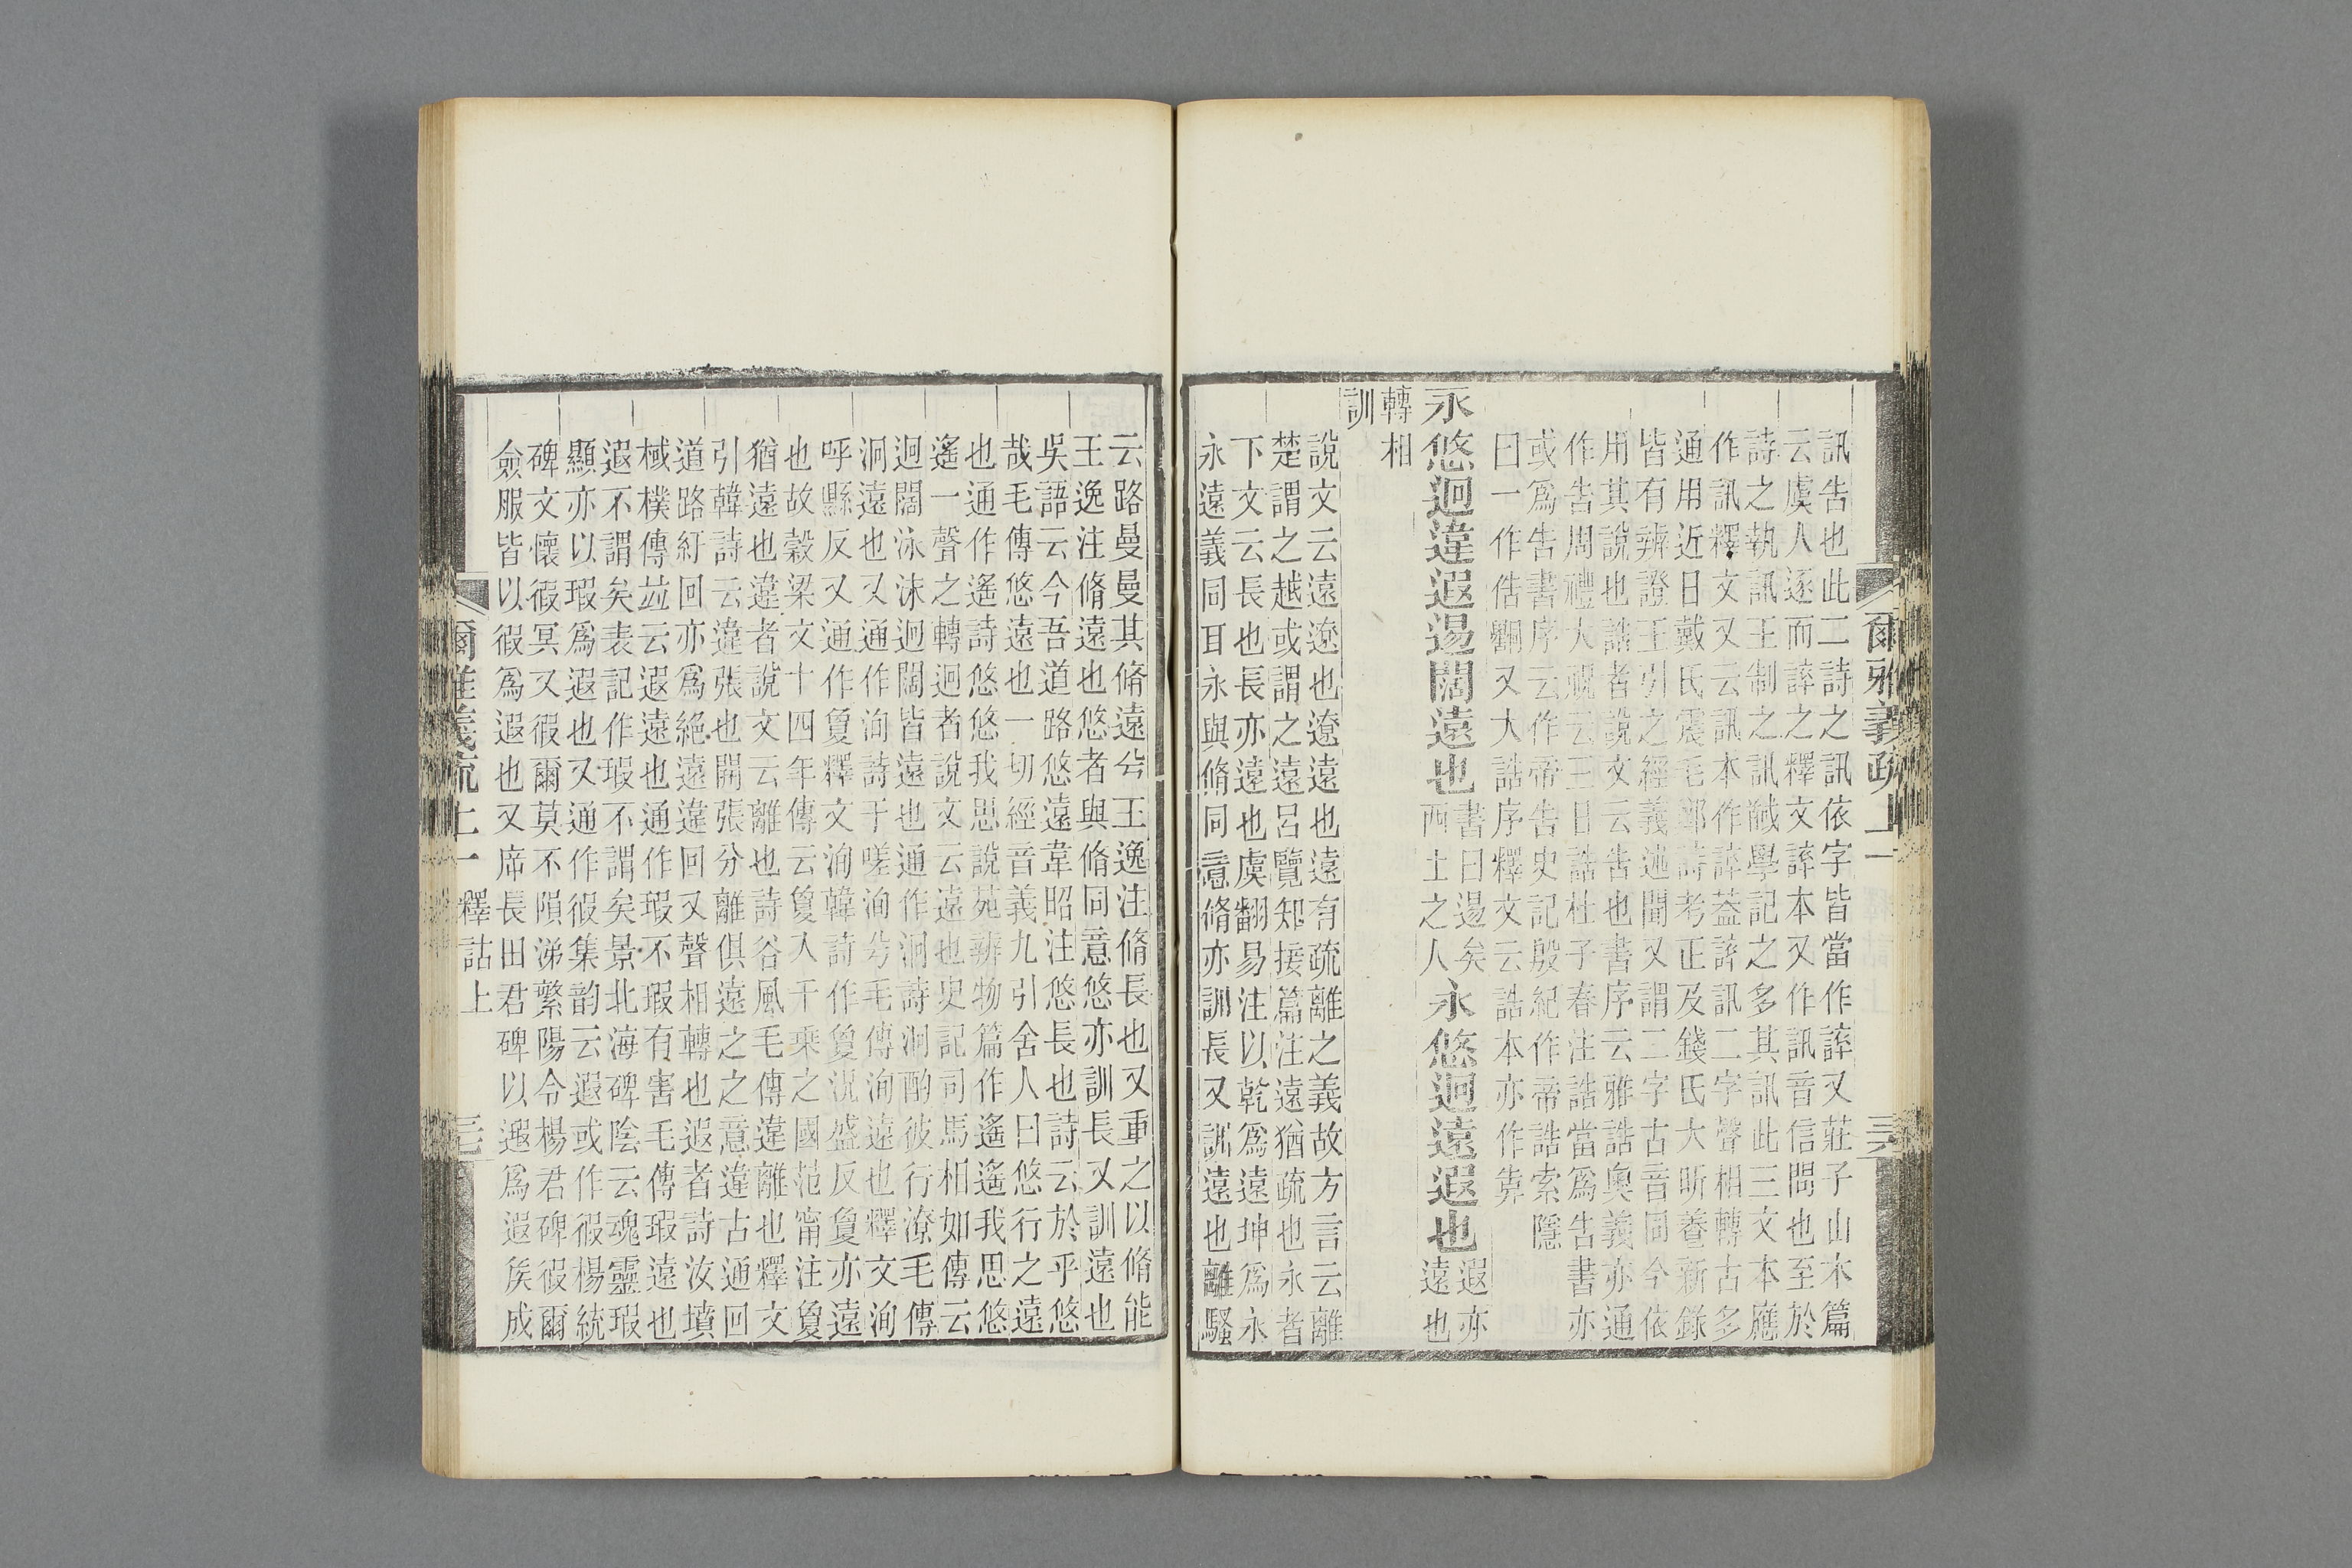 訊告也此二詩之訊依字皆當作誶又莊子山木篇
云虞人逐而誶之釋文誶本又作訊音信問也至於
詩之執訊王制之訊馘學記之多其訊此三文本應
作訊釋文又云訊本作誶蓋誶訊二字聲相轉古多
通用近日戴氏震毛鄭詩考正及錢氏大昕養新錄
皆有辨證王引之經義述聞又謂二字古音同今依
用其說也誥者說文云告也書序云雅誥奧義亦通
作告周禮大祝云三曰誥杜子春注誥當爲告書亦
或爲告書序云作帝告史記殷紀作帝誥索隱
曰一作俈又大誥序釋文云誥本亦作
永悠迥違遐逷闊遠也
書曰逷矣
西土之人
永悠迥遠遐也
遐亦
遠也
轉相
訓
說文云遠遼也遼遠也遠有疏離之義故方言云離
楚謂之越或謂之遠呂覽知接篇注遠猶疏也永者
下文云長也長亦遠也虞翻易注以乾爲遠坤爲永
永遠義同耳永與脩同意脩亦訓長又訓遠也離騷
爾雅義疏上一
云路曼曼其脩遠兮王逸注脩長也又重之以脩能
王逸注脩遠也悠者與脩同意悠亦訓長又訓遠也
吳語云今吾道路悠遠韋昭注悠長也詩云於乎悠
哉毛傳悠遠也一切經音義九引舍人曰悠行之遠
也通作遙詩悠悠我思說苑辨物篇作遙遙我思悠
遙一聲之轉迥者說文云遠也史記司馬相如傳云
迥闊泳沫迥闊皆遠也通作泂詩泂酌彼行潦毛傳
泂遠也又通作洵詩于嗟洵兮毛傳洵遠也釋文洵
呼縣反又通作敻釋文洵韓詩作敻況盛反敻亦遠
也故穀梁文十四年傳云敻入千乘之國范甯注敻
猶遠也違者說文云離也詩谷風毛傳違離也釋文
引韓詩云違張也開張分離俱遠之之意違古通回
道路紆回亦爲絕遠違回又聲相轉也遐者詩汝墳
棫樸傳竝云遐遠也通作瑕不瑕有害毛傳瑕遠也
遐不謂矣表記作瑕不謂矣景北海碑陰云魂靈瑕
顯亦以瑕爲遐也又通作徦集韵云遐或作徦楊統
碑文懷徦冥又徦爾莫不隕涕繁陽令楊君碑徦爾
僉服皆以徦爲遐也又唐長田君碑以遐爲遐矦成
爾雅義疏上一 釋詁上